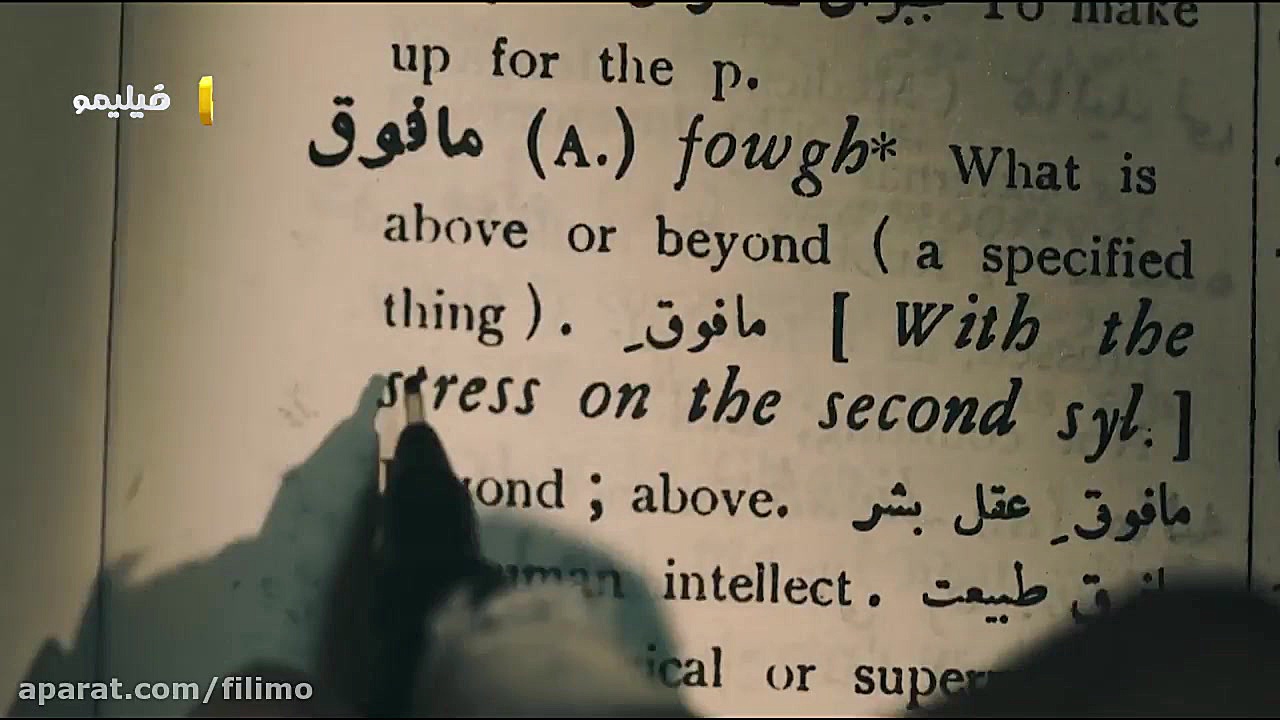 To make
up for the p.
مافوق (A.) fowgh* What is
above or beyond ( a specified
thing ). مافوقِ [ With the
stress on the second syl. ]
; above. مافوقِ عقل بشر
intellect. طبیعت
or
فیلیمو
aparat.com/filimo